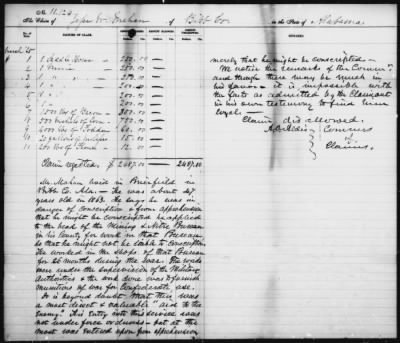 No. 11,124
The Claim of Jesse W. Mahan of Bibb Co. in the State of Alabama
NATURE OF CLAIM.
AMOUNT CLAIMED.
AMOUNT ALLOWED.
AMOUNT DISALLOWED.
REMARKS.
1
2 1
3 1 " "
4 1 "
5 1 "
6 1 "
7 1000 lbs of Bacon
8 bushels of Corn
9 lbs of Fodder
10 20 gallons of
11 200 lbs of Flour 12.00
Claim rejected. $ 2487.00 2487.00
Mr. Mahan lived in Brierfield in
Bibb Co. Ala. — He was about 47
years old in 1863. He says he was in
danger of conscription & from apprehension
that he might be conscripted he applied
to the head of the Mining & Nitre Bureau
in his County for work in that Bureau
so that he might not be liable to conscription
He worked in the shops of that Bureau
for 26 months during the war. The works
were under the supervision of the Military
Authorities & the work done was to furnish
munitions of war for Confederate use.
It is beyond doubt that this was
a most direct & valuable "aid to the
Enemy". His entry into this service was
not under force or duress — but at the
most was entered upon from apprehension
merely that he might be conscripted —
We notice the remarks of the Comr.
and though there may be much in
his favor — it is impossible with
the facts as admitted by the Claimant
in his own testimony to find him
loyal.
Claim disallowed.
A.O. Aldis Commrs
of
Claims.